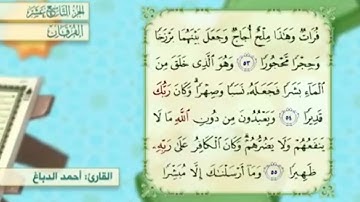 الجزء التاسع عشر
الفرقان
فُرَاتٌ وَهَٰذَا مِلْحٌ أُجَاجٌ وَجَعَلَ بَيْنَهُمَا بَرْزَخًا
وَحِجْرًا مَّحْجُورًا ٥٣ وَهُوَ الَّذِي خَلَقَ مِنَ
الْمَاءِ بَشَرًا فَجَعَلَهُ نَسَبًا وَصِهْرًا وَكَانَ رَبُّكَ
قَدِيرًا ٥٤ وَيَعْبُدُونَ مِن دُونِ اللَّهِ مَا لَا
يَنفَعُهُمْ وَلَا يَضُرُّهُمْ وَكَانَ الْكَافِرُ عَلَىٰ رَبِّهِ
ظَهِيرًا ٥٥ وَمَا أَرْسَلْنَاكَ إِلَّا مُبَشِّرًا
القارئ: أحمد الدباغ